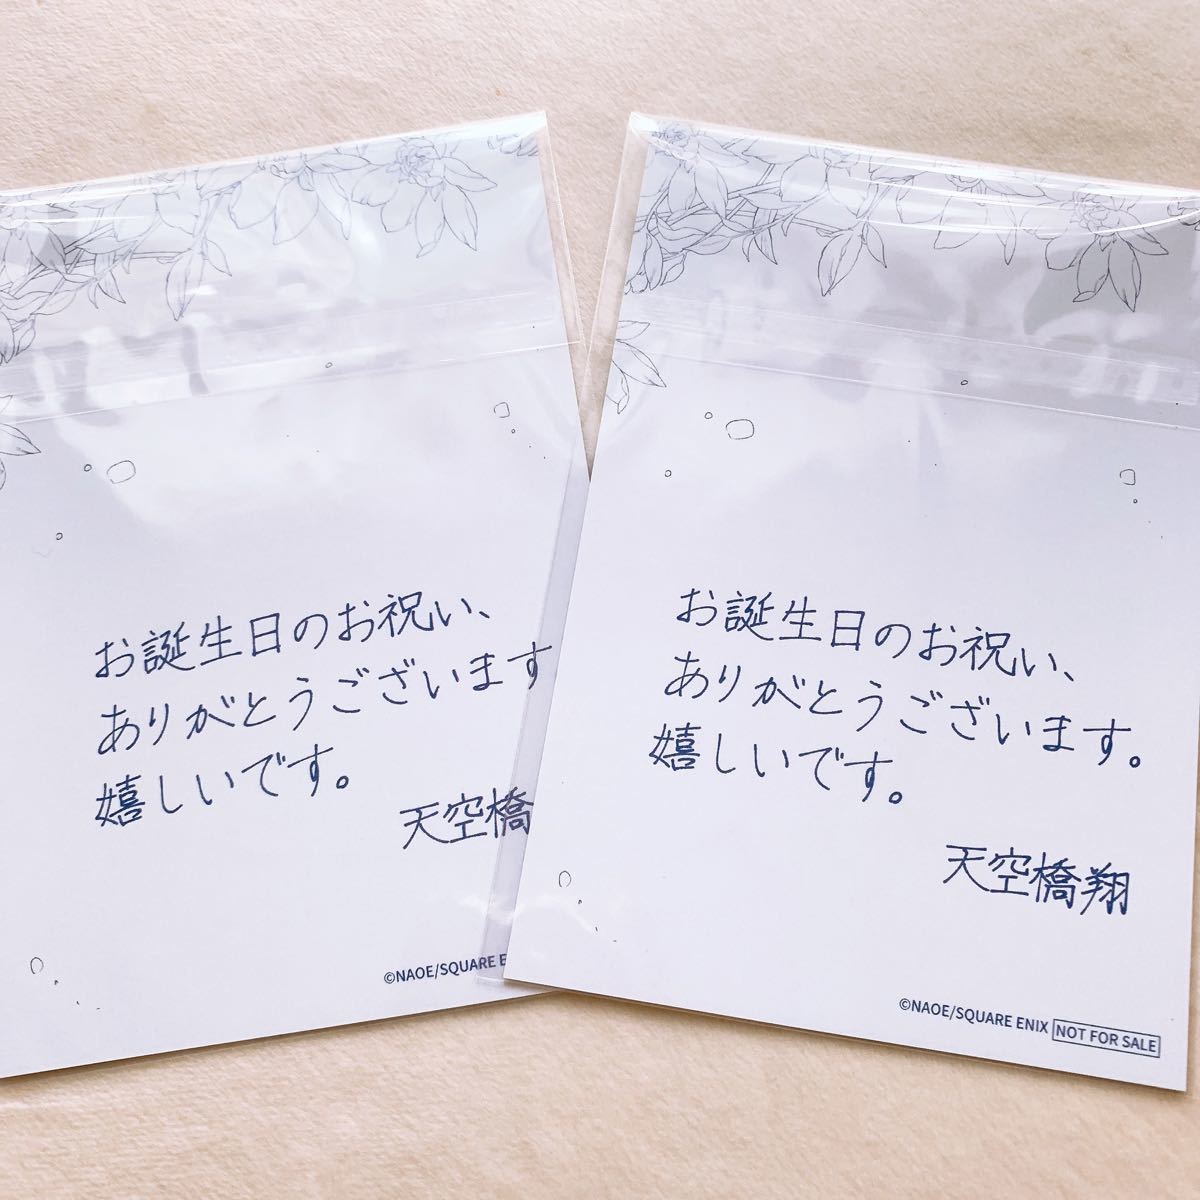 お誕生日のお祝い、
ありがとうございます
嬉しいです。
天空橋
©NAOE/SQUARE E
お誕生日のお祝い、
ありがとうございます。
嬉しいです。
天空橋翔
©NAOE/SQUARE ENIX NOT FOR SALE